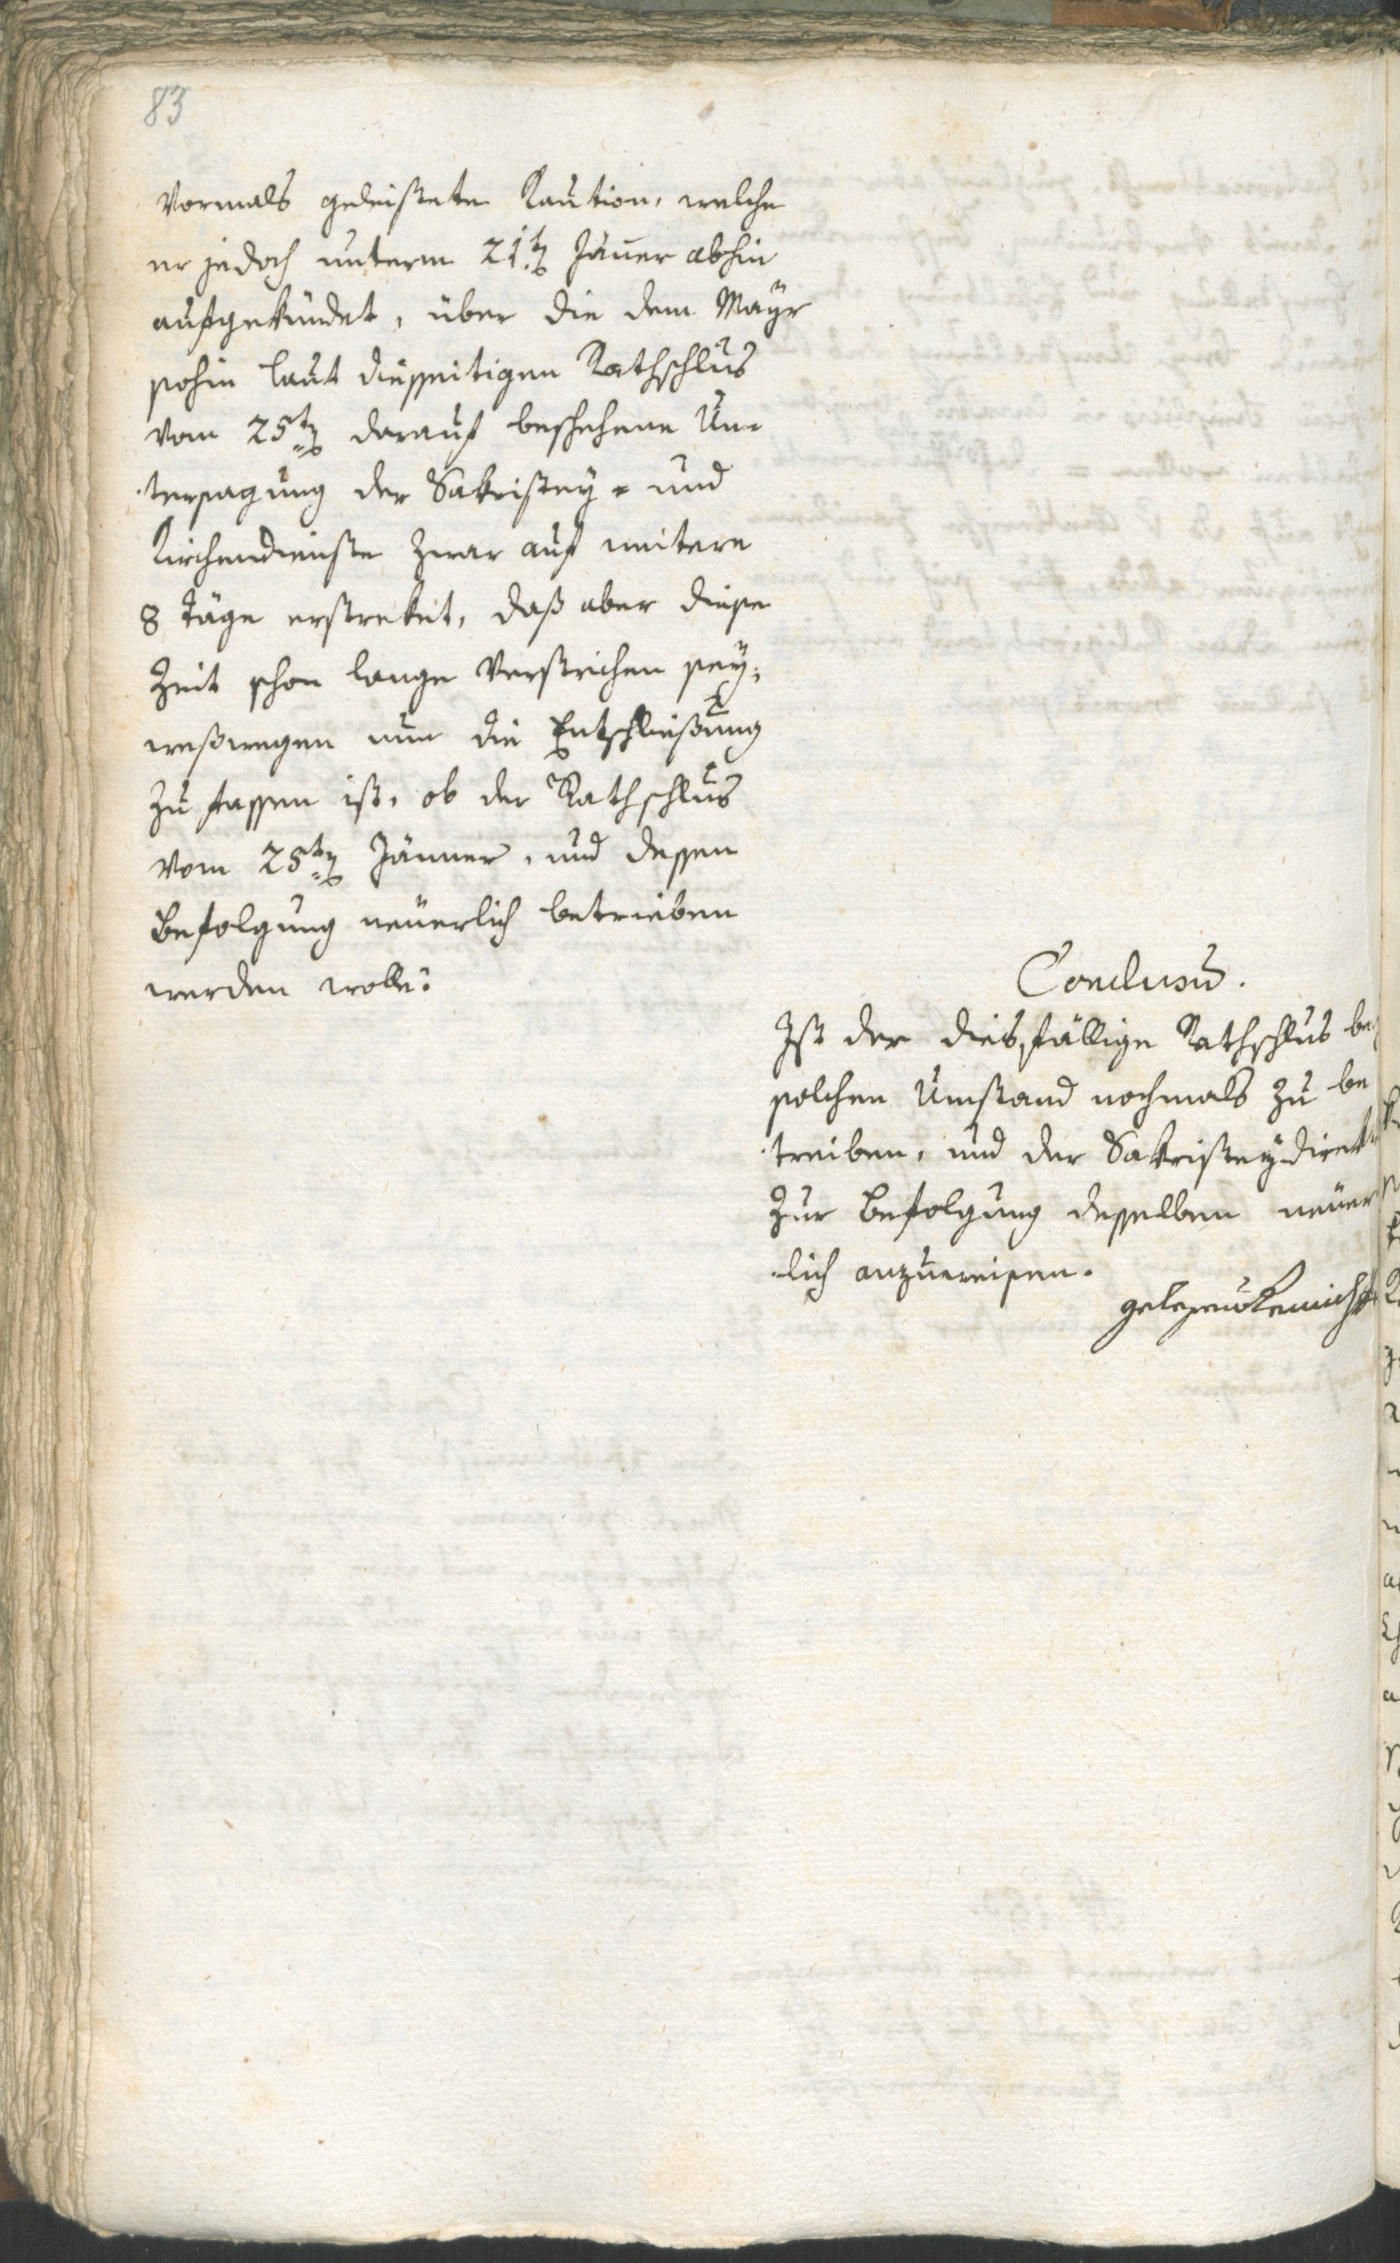 83
vormals geleistete Kaution, welche
er jedoch unterm 21t Jäner abhin
aufgekündet, über die dem Mayr
sohin laut diesseitigen Rathschlus
vom 25t darauf beschehene Un-
tersagung der Sakristey- und
Kirchendienste zwar auf weitere
8 Täge erstreket, daß aber diese
Zeit schon lange verstrichen sey;
weßwegen nun die Entschliessung
zu fassen ist, ob der Rathschlus
vom 25t Jänner, und dessen
Befolgung neuerlich betrieben
werden wolle?
Conclusū.
Ist der diesfällige Rathschlus be
solchen Umstand nochmals zu be
treiben, und der Sakristeydirekt
zur Befolgung desselben neuer
lich anzuweisen.